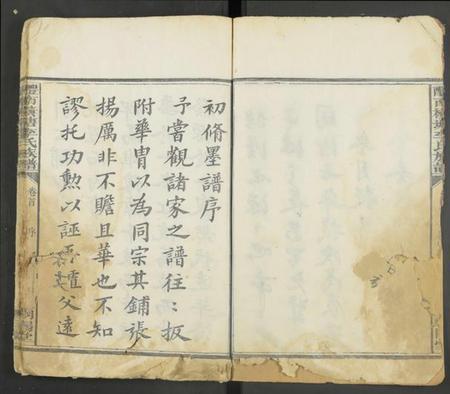 初脩墨譜序
予嘗觀諸家之譜往〻扳
附華冑以為同宗其鋪張
揚厲非不贍且華也不知
謬托功勲以誣吾
父遠
李氏族譜
卷首
序